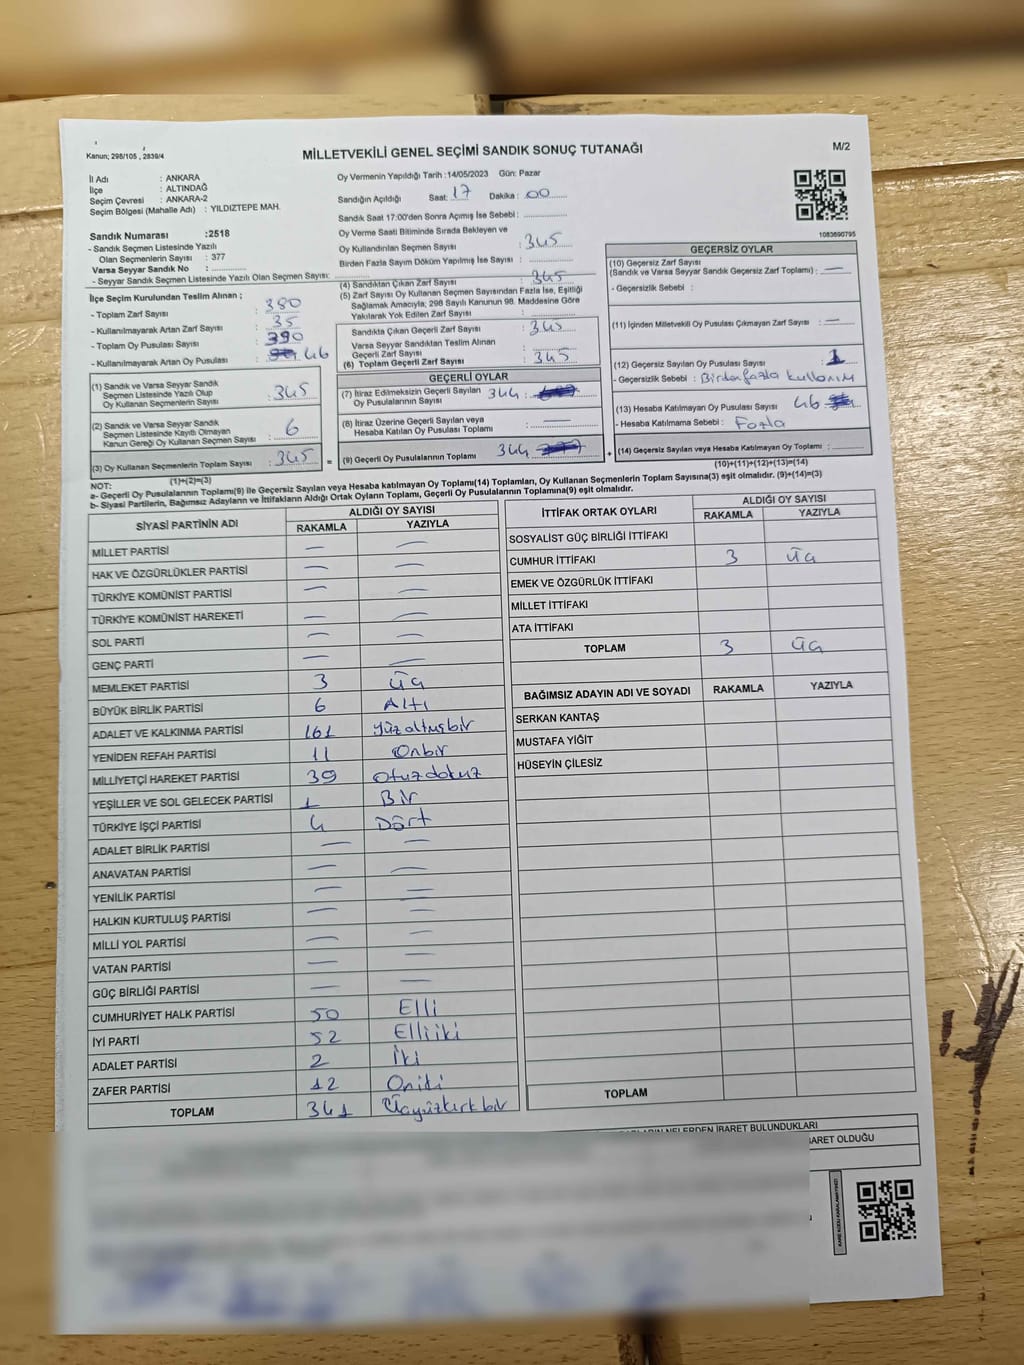 Kanun; 298/105 , 2839/4
MİLLETVEKİLİ GENEL SEÇİMİ SANDIK SONUÇ TUTANAĞI
M/2
İl Adı : ANKARA
İlçe : ALTINDAĞ
Seçim Çevresi : ANKARA-2
Seçim Bölgesi (Mahalle Adı) : YILDIZTEPE MAH.
Oy Vermenin Yapıldığı Tarih :14/05/2023 Gün: Pazar
Sandığın Açıldığı Saat: 17 Dakika : 00
Sandık Saat 17:00'den Sonra Açımış İse Sebebi :
Oy Verme Saati Bitiminde Sırada Bekleyen ve
Oy Kullandırılan Seçmen Sayısı : 345
Birden Fazla Sayım Döküm Yapılmış İse Sayısı :
1083690795
Sandık Numarası :2518
- Sandık Seçmen Listesinde Yazılı
Olan Seçmenlerin Sayısı : 377
Varsa Seyyar Sandık No :
- Seyyar Sandık Seçmen Listesinde Yazılı Olan Seçmen Sayısı:
İlçe Seçim Kurulundan Teslim Alınan ;
- Toplam Zarf Sayısı : 380
- Kullanılmayarak Artan Zarf Sayısı : 35
- Toplam Oy Pusulası Sayısı : 390
- Kullanılmayarak Artan Oy Pusulası : 46
(1) Sandık ve Varsa Seyyar Sandık
Seçmen Listesinde Yazılı Olup
Oy Kullanan Seçmenlerin Sayısı : 345
(2) Sandık ve Varsa Seyyar Sandık
Seçmen Listesinde Kayıtlı Olmayan
Kanun Gereği Oy Kullanan Seçmen Sayısı : 6
(3) Oy Kullanan Seçmenlerin Toplam Sayısı : 345
(1)+(2)=(3)
(4) Sandıktan Çıkan Zarf Sayısı : 345
(5) Zarf Sayısı Oy Kullanan Seçmen Sayısından Fazla İse, Eşitliği
Sağlamak Amacıyla, 298 Sayılı Kanunun 98. Maddesine Göre
Yakılarak Yok Edilen Zarf Sayısı :
Sandıkta Çıkan Geçerli Zarf Sayısı : 345
Varsa Seyyar Sandıktan Teslim Alınan
Geçerli Zarf Sayısı :
(6) Toplam Geçerli Zarf Sayısı : 345
GEÇERLİ OYLAR
(7) İtiraz Edilmeksizin Geçerli Sayılan
Oy Pusulalarının Sayısı 344 :
(8) İtiraz Üzerine Geçerli Sayılan veya
Hesaba Katılan Oy Pusulası Toplamı : —
= (9) Geçerli Oy Pusulalarının Toplamı 344 :
GEÇERSİZ OYLAR
(10) Geçersiz Zarf Sayısı
(Sandık ve Varsa Seyyar Sandık Geçersiz Zarf Toplamı) : —
- Geçersizlik Sebebi :
(11) İçinden Milletvekili Oy Pusulası Çıkmayan Zarf Sayısı : —
(12) Geçersiz Sayılan Oy Pusulası Sayısı : 1
- Geçersizlik Sebebi : Birden fazla kullanım
(13) Hesaba Katılmayan Oy Pusulası Sayısı : 46
- Hesaba Katılmama Sebebi : Fazla
+ (14) Geçersiz Sayılan veya Hesaba Katılmayan Oy Toplamı :
(10)+(11)+(12)+(13)=(14)
NOT:
a- Geçerli Oy Pusulalarının Toplamı(9) ile Geçersiz Sayılan veya Hesaba katılmayan Oy Toplamı(14) Toplamları, Oy Kullanan Seçmenlerin Toplam Sayısına(3) eşit olmalıdır. (9)+(14)=(3)
b- Siyasi Partilerin, Bağımsız Adayların ve İttifakların Aldığı Ortak Oyların Toplamı, Geçerli Oy Pusulalarının Toplamına(9) eşit olmalıdır.
SİYASİ PARTİNİN ADI ALDIĞI OY SAYISI
RAKAMLA YAZIYLA
MİLLET PARTİSİ — —
HAK VE ÖZGÜRLÜKLER PARTİSİ — —
TÜRKİYE KOMÜNİST PARTİSİ — —
TÜRKİYE KOMÜNİST HAREKETİ — —
SOL PARTİ — —
GENÇ PARTİ — —
MEMLEKET PARTİSİ 3 üç
BÜYÜK BİRLİK PARTİSİ 6 Altı
ADALET VE KALKINMA PARTİSİ 161 Yüzaltmışbir
YENİDEN REFAH PARTİSİ 11 Onbir
MİLLİYETÇİ HAREKET PARTİSİ 39 otuzdokuz
YEŞİLLER VE SOL GELECEK PARTİSİ 1 Bir
TÜRKİYE İŞÇİ PARTİSİ 4 Dört
ADALET BİRLİK PARTİSİ — —
ANAVATAN PARTİSİ — —
YENİLİK PARTİSİ — —
HALKIN KURTULUŞ PARTİSİ — —
MİLLİ YOL PARTİSİ — —
VATAN PARTİSİ — —
GÜÇ BİRLİĞİ PARTİSİ — —
CUMHURİYET HALK PARTİSİ 50 Elli
İYİ PARTİ 52 Elliiki
ADALET PARTİSİ 2 İki
ZAFER PARTİSİ 12 Oniki
TOPLAM 341 Üçyüzkırkbir
İTTİFAK ORTAK OYLARI ALDIĞI OY SAYISI
RAKAMLA YAZIYLA
SOSYALİST GÜÇ BİRLİĞİ İTTİFAKI
CUMHUR İTTİFAKI 3 üç
EMEK VE ÖZGÜRLÜK İTTİFAKI
MİLLET İTTİFAKI
ATA İTTİFAKI
TOPLAM 3 üç
BAĞIMSIZ ADAYIN ADI VE SOYADI RAKAMLA YAZIYLA
SERKAN KANTAŞ
MUSTAFA YİĞİT
HÜSEYİN ÇİLESİZ
TOPLAM
NELERDEN İBARET BULUNDUKLARI
BARET OLDUĞU